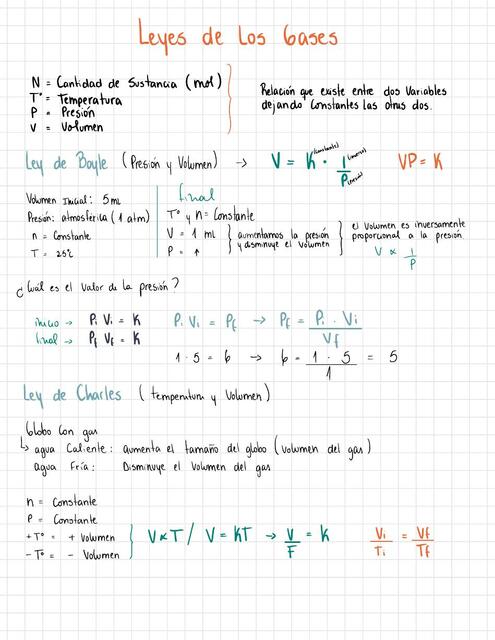 Leyes de Los Gases
N = Cantidad de Sustancia (mol)
T° = Temperatura
P = Presión
V = Volumen
Relación que existe entre dos Variables
dejando Constantes las otras dos.
Ley de Boyle (Presión y Volumen) → V = K (constante) · 1 (inversa) / P (presión) VP = K
Volumen Inicial: 5 mL
Presión: atmosférica (1 atm)
n = Constante
T = 25°C
final
T° y n = Constante
V = 1 mL
P = ↑
aumentamos la presión
y disminuye el volumen
el volumen es inversamente
proporcional a la presión.
V ∝ 1/P
¿Cuál es el valor de la presión?
inicio → Pi Vi = K
final → Pf Vf = K
Pi Vi = Pf → Pf = Pi · Vi / Vf
1 · 5 = 6 → 6 = 1 · 5 / 1 = 5
Ley de Charles (temperatura y Volumen)
Globo con gas
↳ agua Caliente: aumenta el tamaño del globo (volumen del gas)
agua Fría: Disminuye el volumen del gas
n = Constante
P = Constante
+T° = + Volumen
-T° = - Volumen
V ∝ T / V = KT → V/F = K Vi/Ti = Vf/Tf